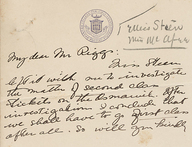 Ellis Stern
My dear Mr Riggs:
Miss Stern
left it with me to investigate
the matter of second class
tickets on the Romanich. After
investigation I conclude that
we shall have to go first class
after all. So will you kindly